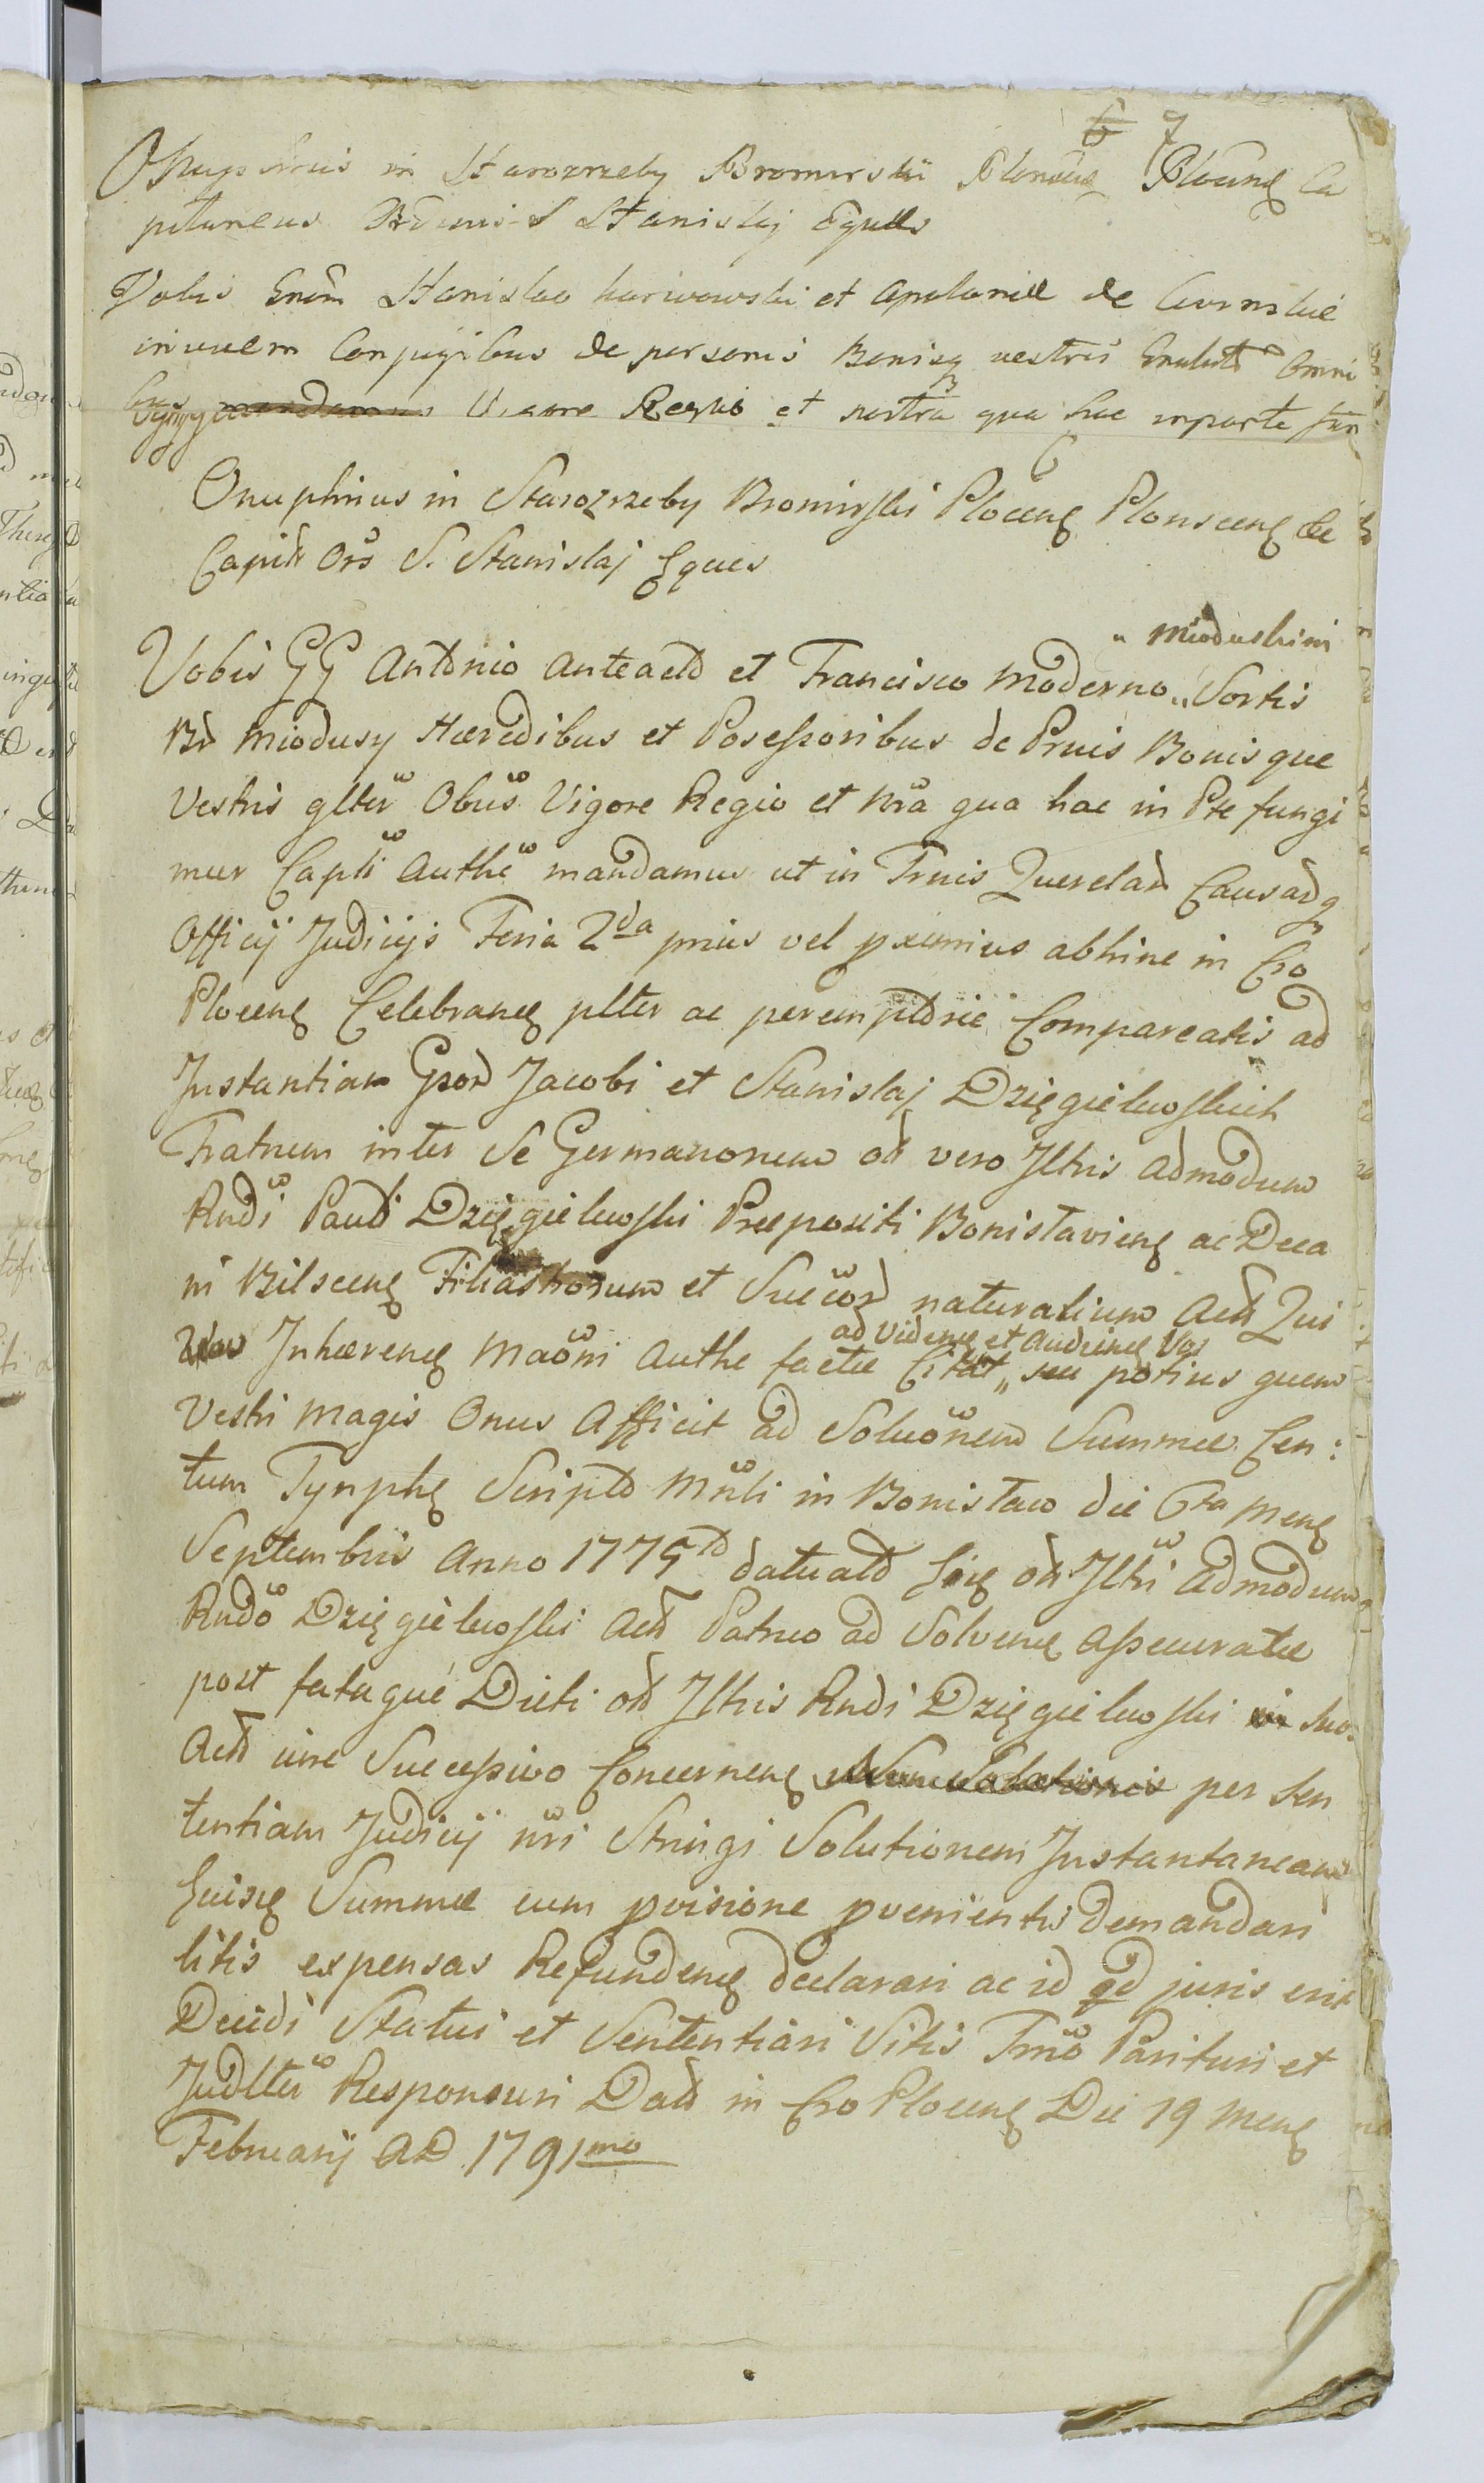 6 7
Onuphrius in Starozrzeby Bromirski Plonscen Plocen Ca
pitaneus Ordinis S Stanislaj Eques
Vobis Stanislao et Apolonie de
invicem Conjugibus de personis Bonisq vestris Omni
bus mandamus Vigore Regio et nostra qua hac in parte fun
6
Onuphrius in Starozrzeby Bromirski Plocen Plonscen &c
Capits Ors S. Stanislaj Eques
„ Mioduskimi
Vobis GG Antonio Anteacto et Francisco Moderno „ Sortis
Br Miodusy Hæredibus et Posessoribus de Prnis Bonisque
Vestris glter Obus Vigore Regio et nra qua hac in Pte fungi
mur Capli Authe mandamus ut in Trnis Querelar Causarq
Officij Judicijs Feria 2da prius vel pximius abhinc in Cro
Plocen Celebranen plter ac peremptorie Compareatis ad
Instantiam Gsor Jacobi et Stanislaj Dzięgielewskich
Fratrum inter Se Germanorum ol vero Jltris Admodum
Rndi Pauli Dzięgielewski Præpositi Bonislavien ac Deca
ni Bilscen Filiastrorum et Succor naturalium Actt Qui
Vos Inhæren Maoni Authe factæ Citat „ ad Viden et Audien Vos seu potius quem
Vestri magis Onus Afficit ad Soluonem Summæ Cen:
tum Tynph Scripto Mnli in Bonislaw die 6ta Men
Septembris Anno 1775to datuato Sive ol Jltri Admodum
Rndo Dzięgielewski Actt Patruo ad Solven Assecuratæ
post fataque Dicti ol Jltris Rndi Dzięgielewski in suos
Actt iure Successivo Concernen per Sen
tentiam Judicij nri Stringi Solutionem Instantaneam
huius Summæ cum pvisione pvenientis demandari
litis expensas Refunden declarari ac id qd juris erit
Decidi Statui et Sententiari Sitis Trno Parituri et
Judlter Responsuri Datt in Cro Plocen Die 19 Men
Februarij AD 1791mo